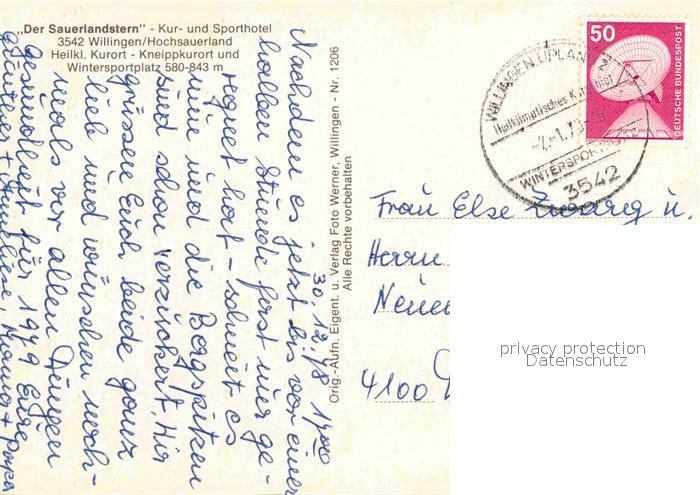 „Der Sauerlandstern" - Kur- und Sporthotel
3542 Willingen/Hochsauerland
Heilkl. Kurort - Kneippkurort und
Wintersportplatz 580-843 m
30.12.78 19.00
Nachdem es jetzt bis vor einer
halben Stunde fast nur ge-
regnet hat - schneit es
nun und die Bergspitzen
sind schon verzuckert. Wir
grüssen Euch beide ganz
lieb und wünschen noch-
mals vor allen Dingen
Gesundheit für 1979 Eure
Günther + Anneliese, Mama + Papa
Orig.-Aufn. Eigent. u. Verlag Foto Werner, Willingen - Nr. 1206
Alle Rechte vorbehalten
50
DEUTSCHE BUNDESPOST
WILLINGEN (UPLAND)
Heilklimatisches
WINTERSPORT
3542
Frau Else Zwarg u.
Herrn
4100
privacy protection
Datenschutz